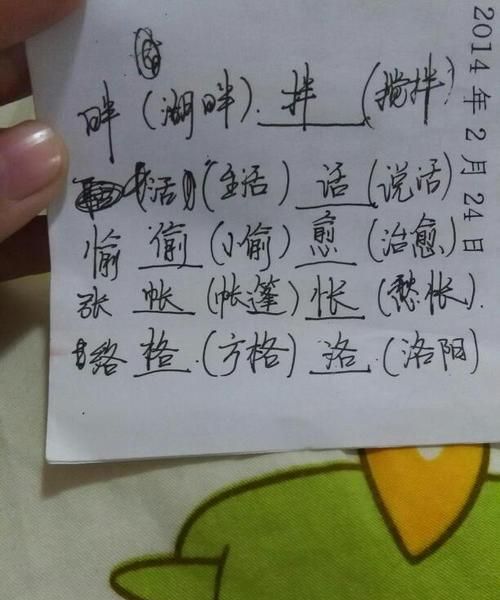 畔 (湖畔). 拌 (搅拌)
活 (生活) 话 (说话)
愉 偷 (小偷) 愈 (治愈)
张 帐 (帐蓬) 怅 (愁怅).
络 格.(方格) 洛.(洛阳)
2014年2月24日